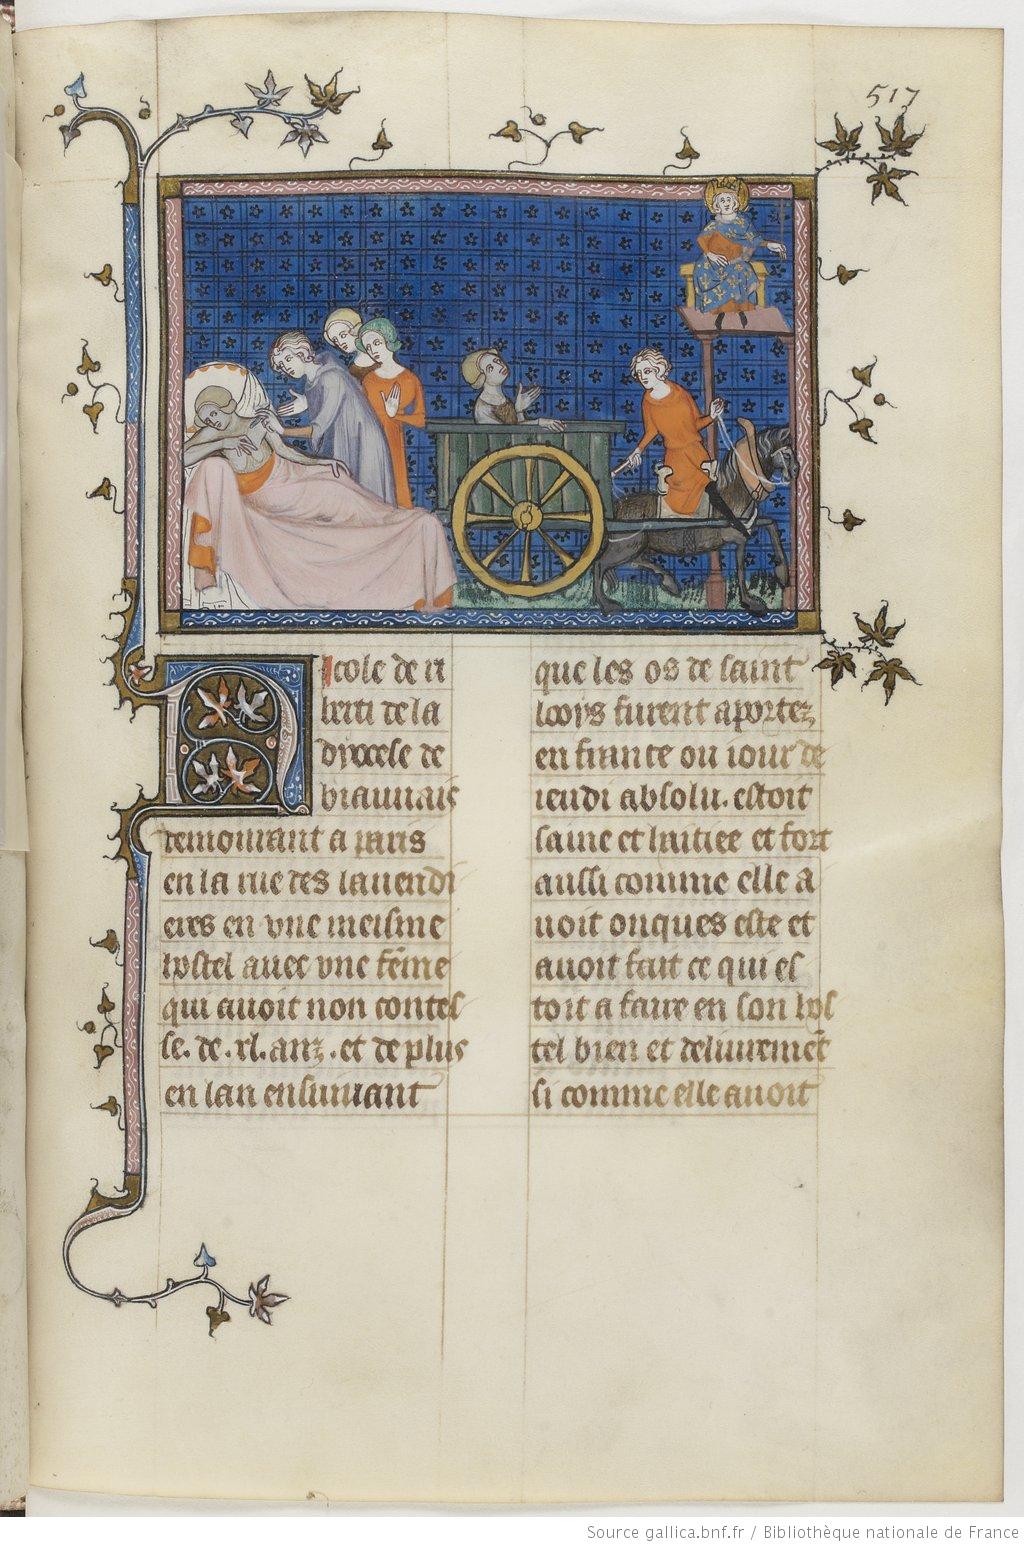 517
Nicole de ri
berti de la
dyocese de
biauuais
demourant a paris
en la rue des lauendi
eres en vne meisme
hostel auec vne fẽme
qui auoit non contes
se. de .xl. anz. et de plus
en lan ensiuuant
que les os de saint
looys furent aportez
en france ou iour de
ieudi absolu. estoit
saine et haitiee et fort
aussi comme elle a
uoit onques este et
auoit fait ce qui es
toit a faire en son hos
tel bien et deliuremẽt
si comme elle auoit
Source gallica.bnf.fr / Bibliothèque nationale de France